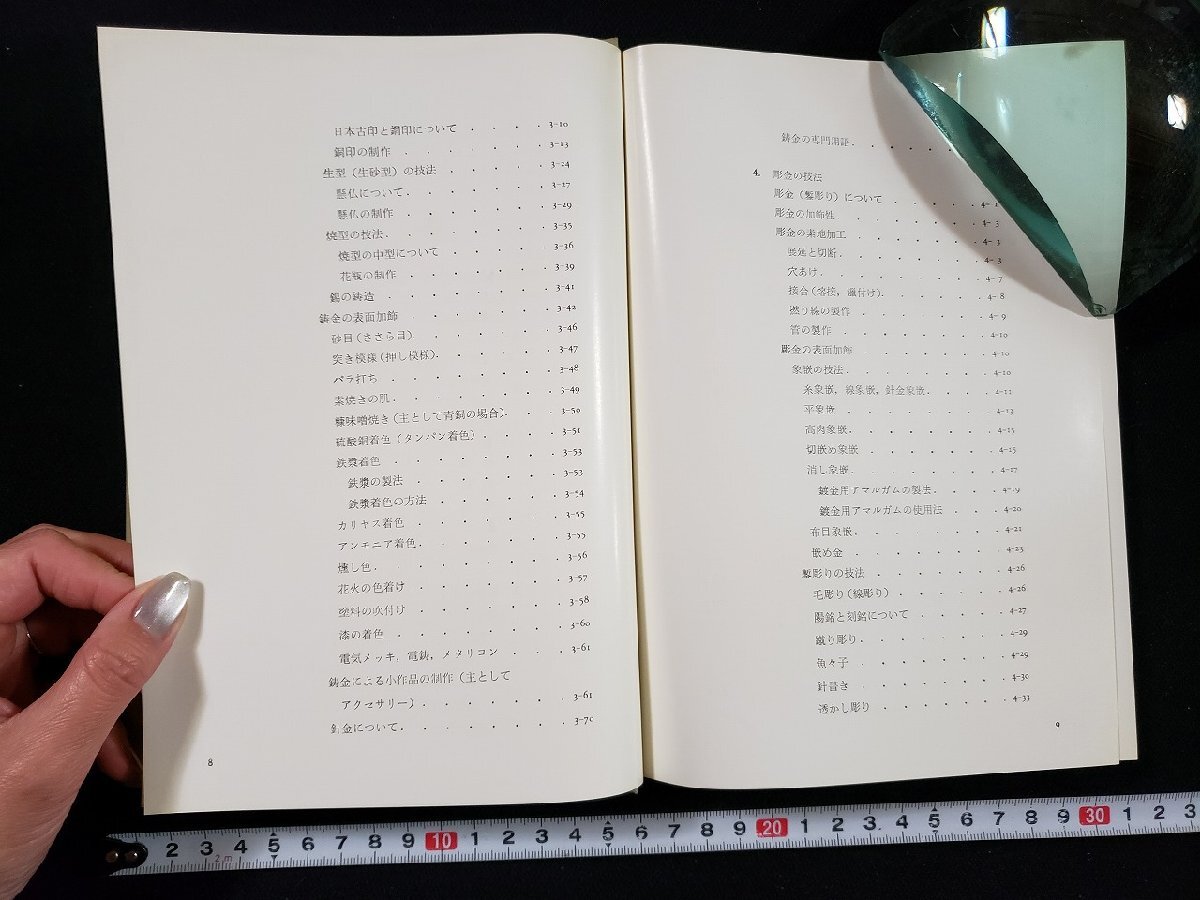 日本古印と銅印について . . . . 3-10
銅印の制作 . . . . . . . 3-13
生型（生砂型）の技法 . . . . . 3-24
懸仏について . . . . . . . 3-27
懸仏の制作 . . . . . . . 3-29
焼型の技法 . . . . . . . . 3-35
焼型の中型について . . . . . 3-36
花瓶の制作 . . . . . . . 3-39
錫の鋳造 . . . . . . . . 3-41
鋳金の表面加飾 . . . . . . 3-42
砂目（ささら目） . . . . . . 3-46
突き模様（押し模様） . . . . . 3-47
バラ打ち . . . . . . . . 3-48
素焼きの肌 . . . . . . . . 3-49
糠味噌焼き（主として青銅の場合） . . . 3-50
硫酸銅着色（タンパン着色） . . . . 3-51
鉄漿着色 . . . . . . . . 3-53
鉄漿の製法 . . . . . . . 3-53
鉄漿着色の方法 . . . . . . 3-54
カリヤス着色 . . . . . . . 3-55
アンモニア着色 . . . . . . . 3-55
燻し色 . . . . . . . . . 3-56
花火の色着け . . . . . . . 3-57
塗料の吹付け . . . . . . . 3-58
漆の着色 . . . . . . . . 3-60
電気メッキ，電鋳，メタリコン . . . 3-61
鋳金による小作品の制作（主として
アクセサリー） . . . . . . . 3-61
金について . . . . . . . . 3-70
8
鋳金の専門用語 . . . . .
4. 彫金の技法
彫金（鏨彫り）について . . . . . 4-
彫金の加飾性 . . . . . . . 4-3
彫金の素地加工 . . . . . . 4-3
と切断 . . . . . . . 4-3
穴あけ . . . . . . . . 4-7
接合（溶接，鑞付け） . . . . . 4-8
撚り線の製作 . . . . . . . 4-9
管の製作 . . . . . . . . 4-10
彫金の表面加飾 . . . . . . 4-10
象嵌の技法 . . . . . . . . 4-10
糸象嵌，線象嵌，針金象嵌 . . . . 4-12
平象嵌 . . . . . . . . 4-13
高肉象嵌 . . . . . . . . 4-15
切嵌め象嵌 . . . . . . . 4-15
消し象嵌 . . . . . . . . 4-17
鍍金用アマルガムの製法 . . . . 4-19
鍍金用アマルガムの使用法 . . . 4-20
布目象嵌 . . . . . . . . 4-21
嵌め金 . . . . . . . . 4-23
鏨彫りの技法 . . . . . . . 4-26
毛彫り（線彫り） . . . . . . 4-26
陽銘と刻銘について . . . . . 4-27
蹴り彫り . . . . . . . . 4-29
魚々子 . . . . . . . . 4-29
針書き . . . . . . . . 4-30
透かし彫り . . . . . . . 4-31
9
2 3 4 5 6 7 8 9 10 1 2 3 4 5 6 7 8 9 20 1 2 3 4 5 6 7 8 9 30 1 2 3
2m